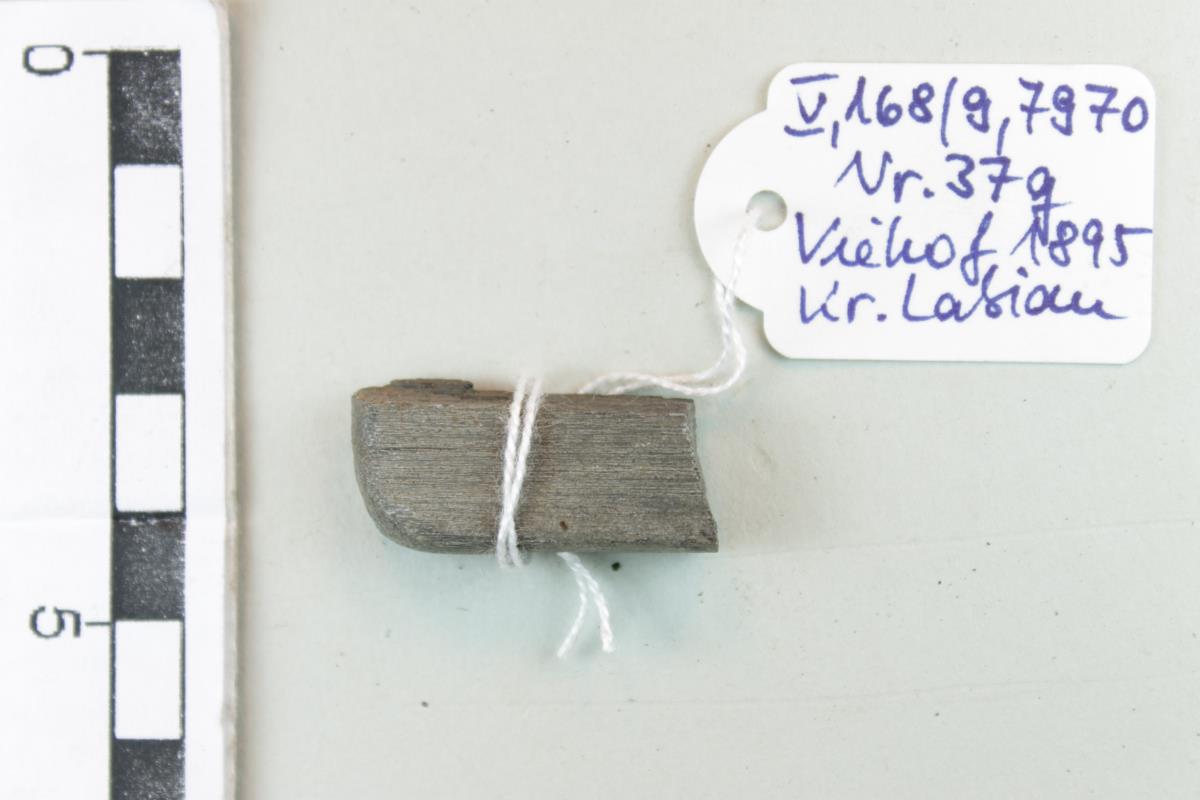 0
5
V,168/9,7970
Nr. 37g
Viehof 1895
Kr. Labiau